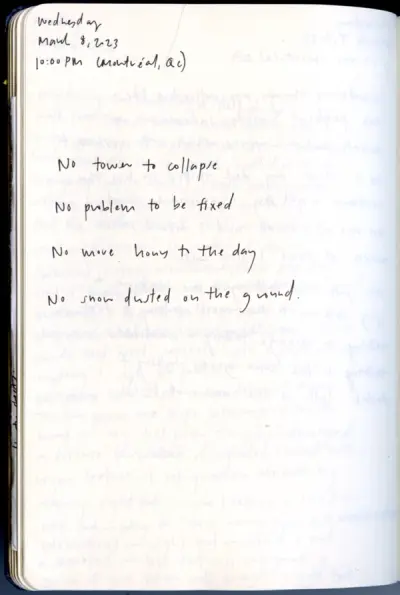 Wednesday
March 8, 2023
10:00 PM (Montréal, Qc)
No tower to collapse
No problem to be fixed
No more hours to the day
No snow dusted on the ground.